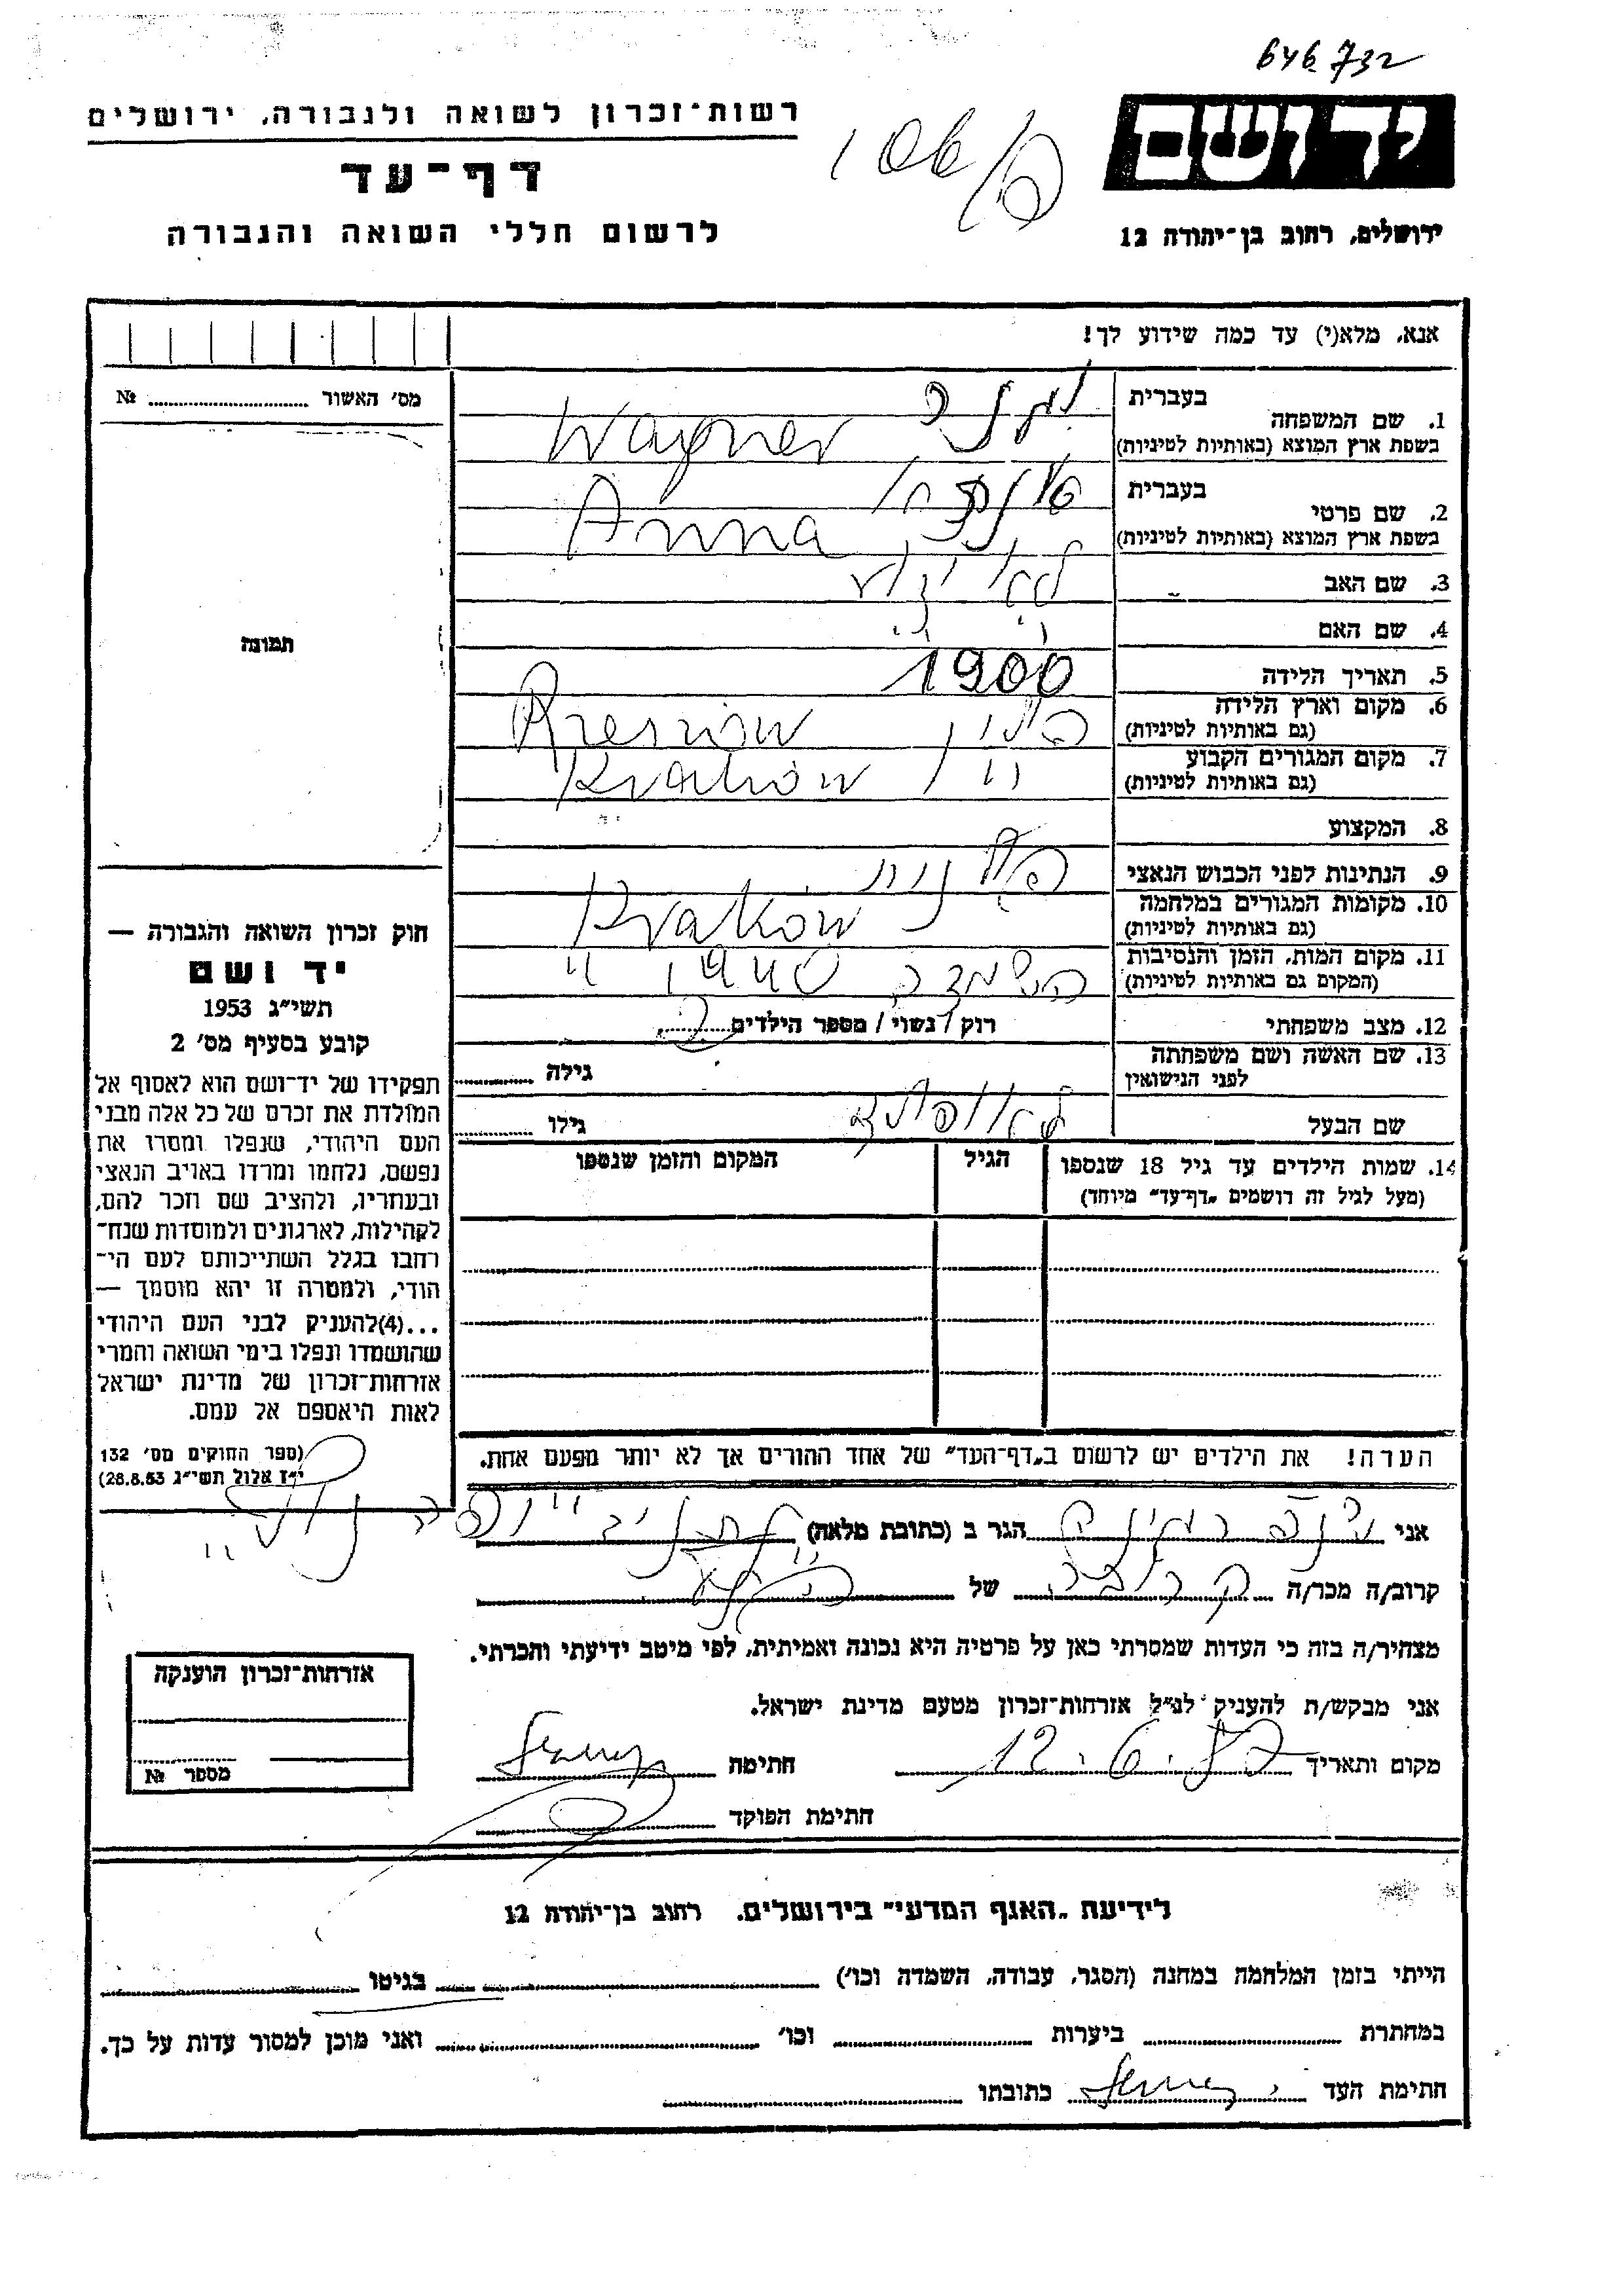 646732
רשות־זכרון לשואה ולגבורה, ירושלים
יד ושם
דף־עד
לרשום חללי השואה והגבורה
ירושלים, רחוב בן־יהודה 12
אנא, מלא(י) עד כמה שידוע לך!
מס׳ האשור № 
תמונה
1. שם המשפחה
בעברית
בשפת ארץ המוצא (באותיות לטיניות) Wagner
2. שם פרטי
בעברית
בשפת ארץ המוצא (באותיות לטיניות) Anna
3. שם האב
4. שם האם
5. תאריך הלידה 1900
6. מקום וארץ הלידה
(גם באותיות לטיניות) פולין Rzeszów
7. מקום המגורים הקבוע
(גם באותיות לטיניות) Kraków
8. המקצוע
9. הנתינות לפני הכבוש הנאצי פולנית
10. מקומות המגורים במלחמה
(גם באותיות לטיניות) Kraków
11. מקום המות, הזמן והנסיבות
(המקום גם באותיות לטיניות)
12. מצב משפחתי רוק / נשוי / מספר הילדים
13. שם האשה ושם משפחתה
לפני הנישואין
גילה
שם הבעל
גילו
14. שמות הילדים עד גיל 18 שנספו
(מעל לגיל זה רושמים „דף־עד״ מיוחד)
הגיל
המקום והזמן שנספו
חוק זכרון השואה והגבורה —
יד ושם
תשי״ג 1953
קובע בסעיף מס׳ 2
תפקידו של יד־ושם הוא לאסוף אל
המולדת את זכרם של כל אלה מבני
העם היהודי, שנפלו ומסרו את
נפשם, נלחמו ומרדו באויב הנאצי
ובעוזריו, ולהציב שם וזכר להם,
לקהילות, לארגונים ולמוסדות שנח־
רבו בגלל השתייכותם לעם הי־
הודי, ולמטרה זו יהא מוסמך —
...(4)להעניק לבני העם היהודי
שהושמדו ונפלו בימי השואה והמרי
אזרחות־זכרון של מדינת ישראל
לאות היאספם אל עמם.
(ספר החוקים מס׳ 132
י״ז אלול תשי״ג 28.8.53)
הערה! את הילדים יש לרשום ב„דף־העד״ של אחד ההורים אך לא יותר מפעם אחת.
אני הגר ב (כתובת מלאה)
קרוב/ה מכר/ה קרובה של
מצהיר/ה בזה כי העדות שמסרתי כאן על פרטיה היא נכונה ואמיתית, לפי מיטב ידיעתי והכרתי.
אני מבקש/ת להעניק לנ״ל אזרחות־זכרון מטעם מדינת ישראל.
מקום ותאריך 12.6. חתימה
חתימת הפוקד
אזרחות־זכרון הוענקה
מספר №
לידיעת „האגף המדעי״ בירושלים, רחוב בן־יהודה 12
הייתי בזמן המלחמה במחנה (הסגר, עבודה, השמדה וכו׳) בגיטו
במחתרת ביערות וכו׳ ואני מוכן למסור עדות על כך.
חתימת העד כתובתו